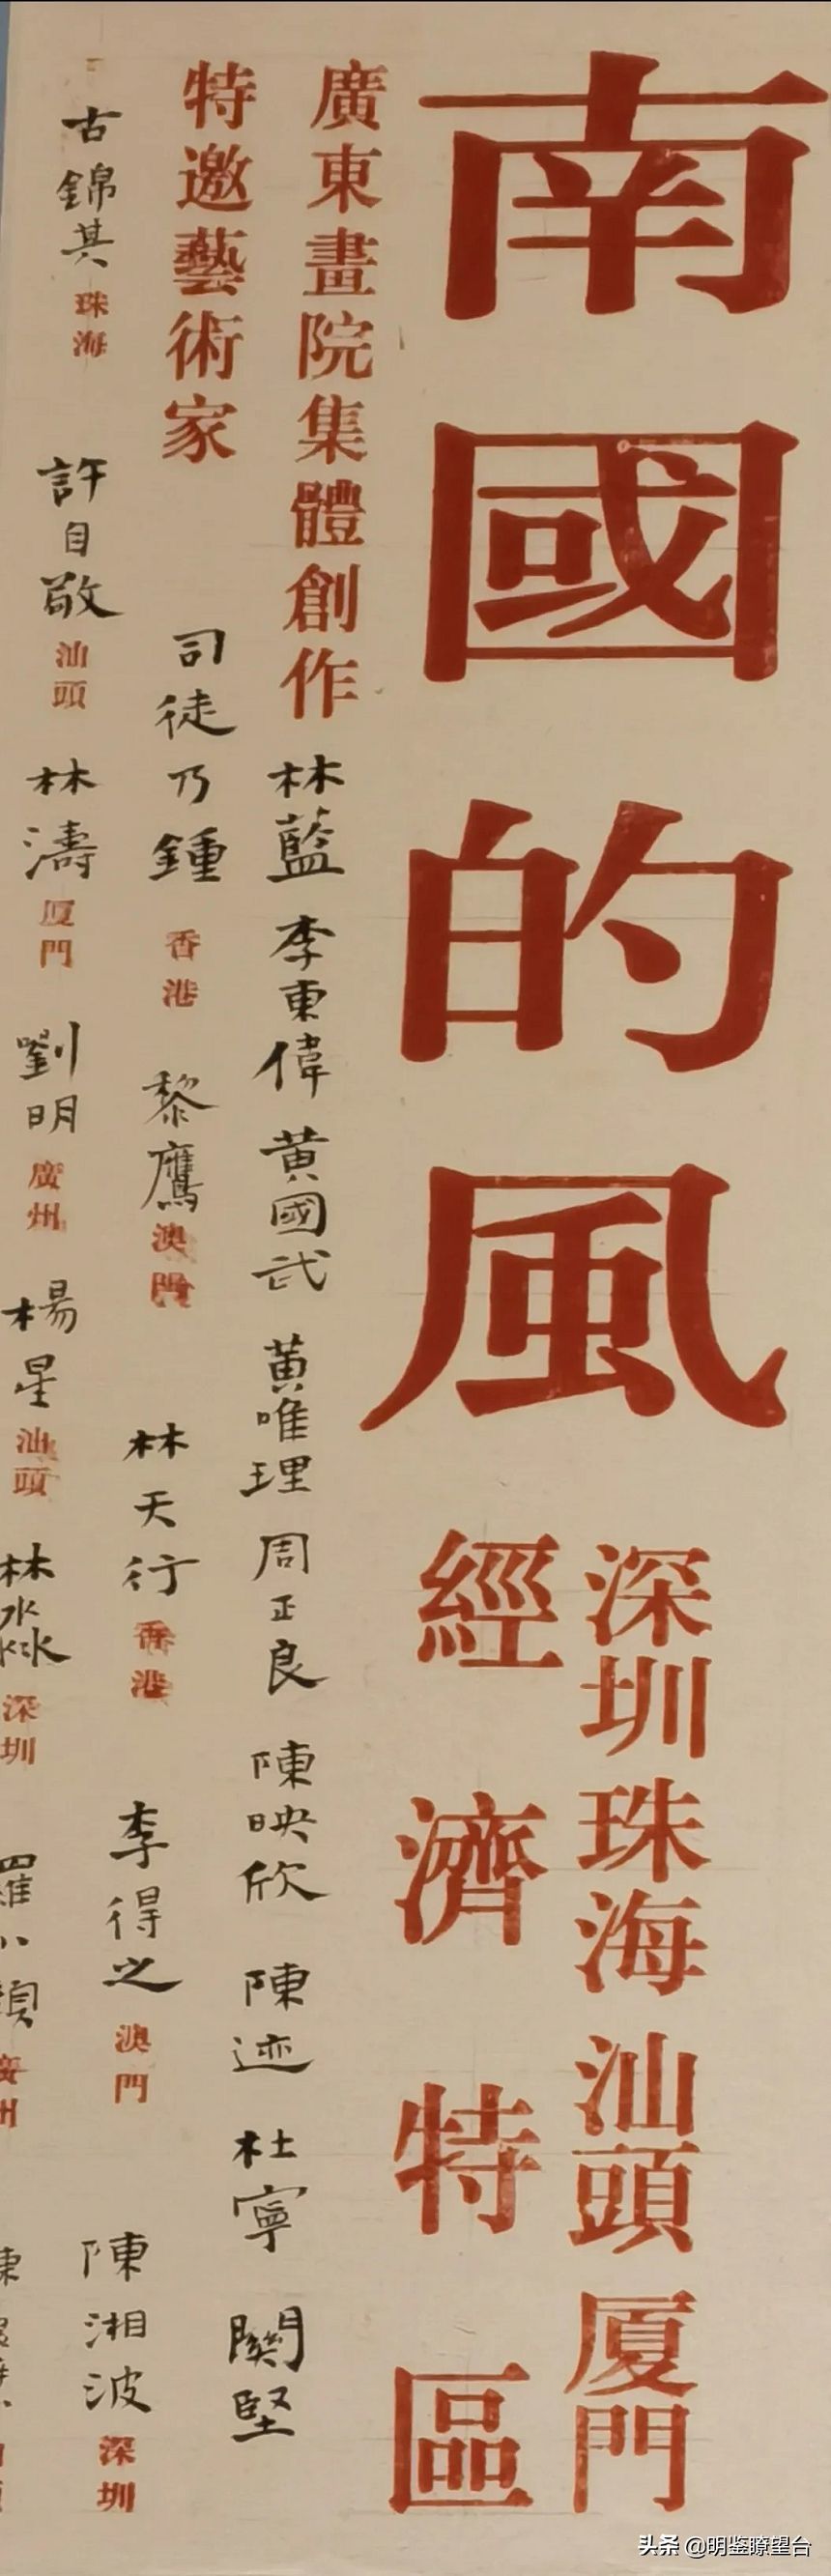 南國的風
深圳珠海汕頭厦門
經濟特區
廣東畫院集體創作
林藍 李東偉 黃國武 黃唯理 周正良 陳映欣 陳迹 杜寧 關堅
特邀藝術家
司徒乃鍾 香港 黎鷹 澳門 林天行 香港 李得之 澳門 陳湘波 深圳
古錦其 珠海 許自敬 汕頭 林濤 厦門 劉明 廣州 楊星 汕頭 林淼 深圳 羅小
頭条 @明鉴瞭望台